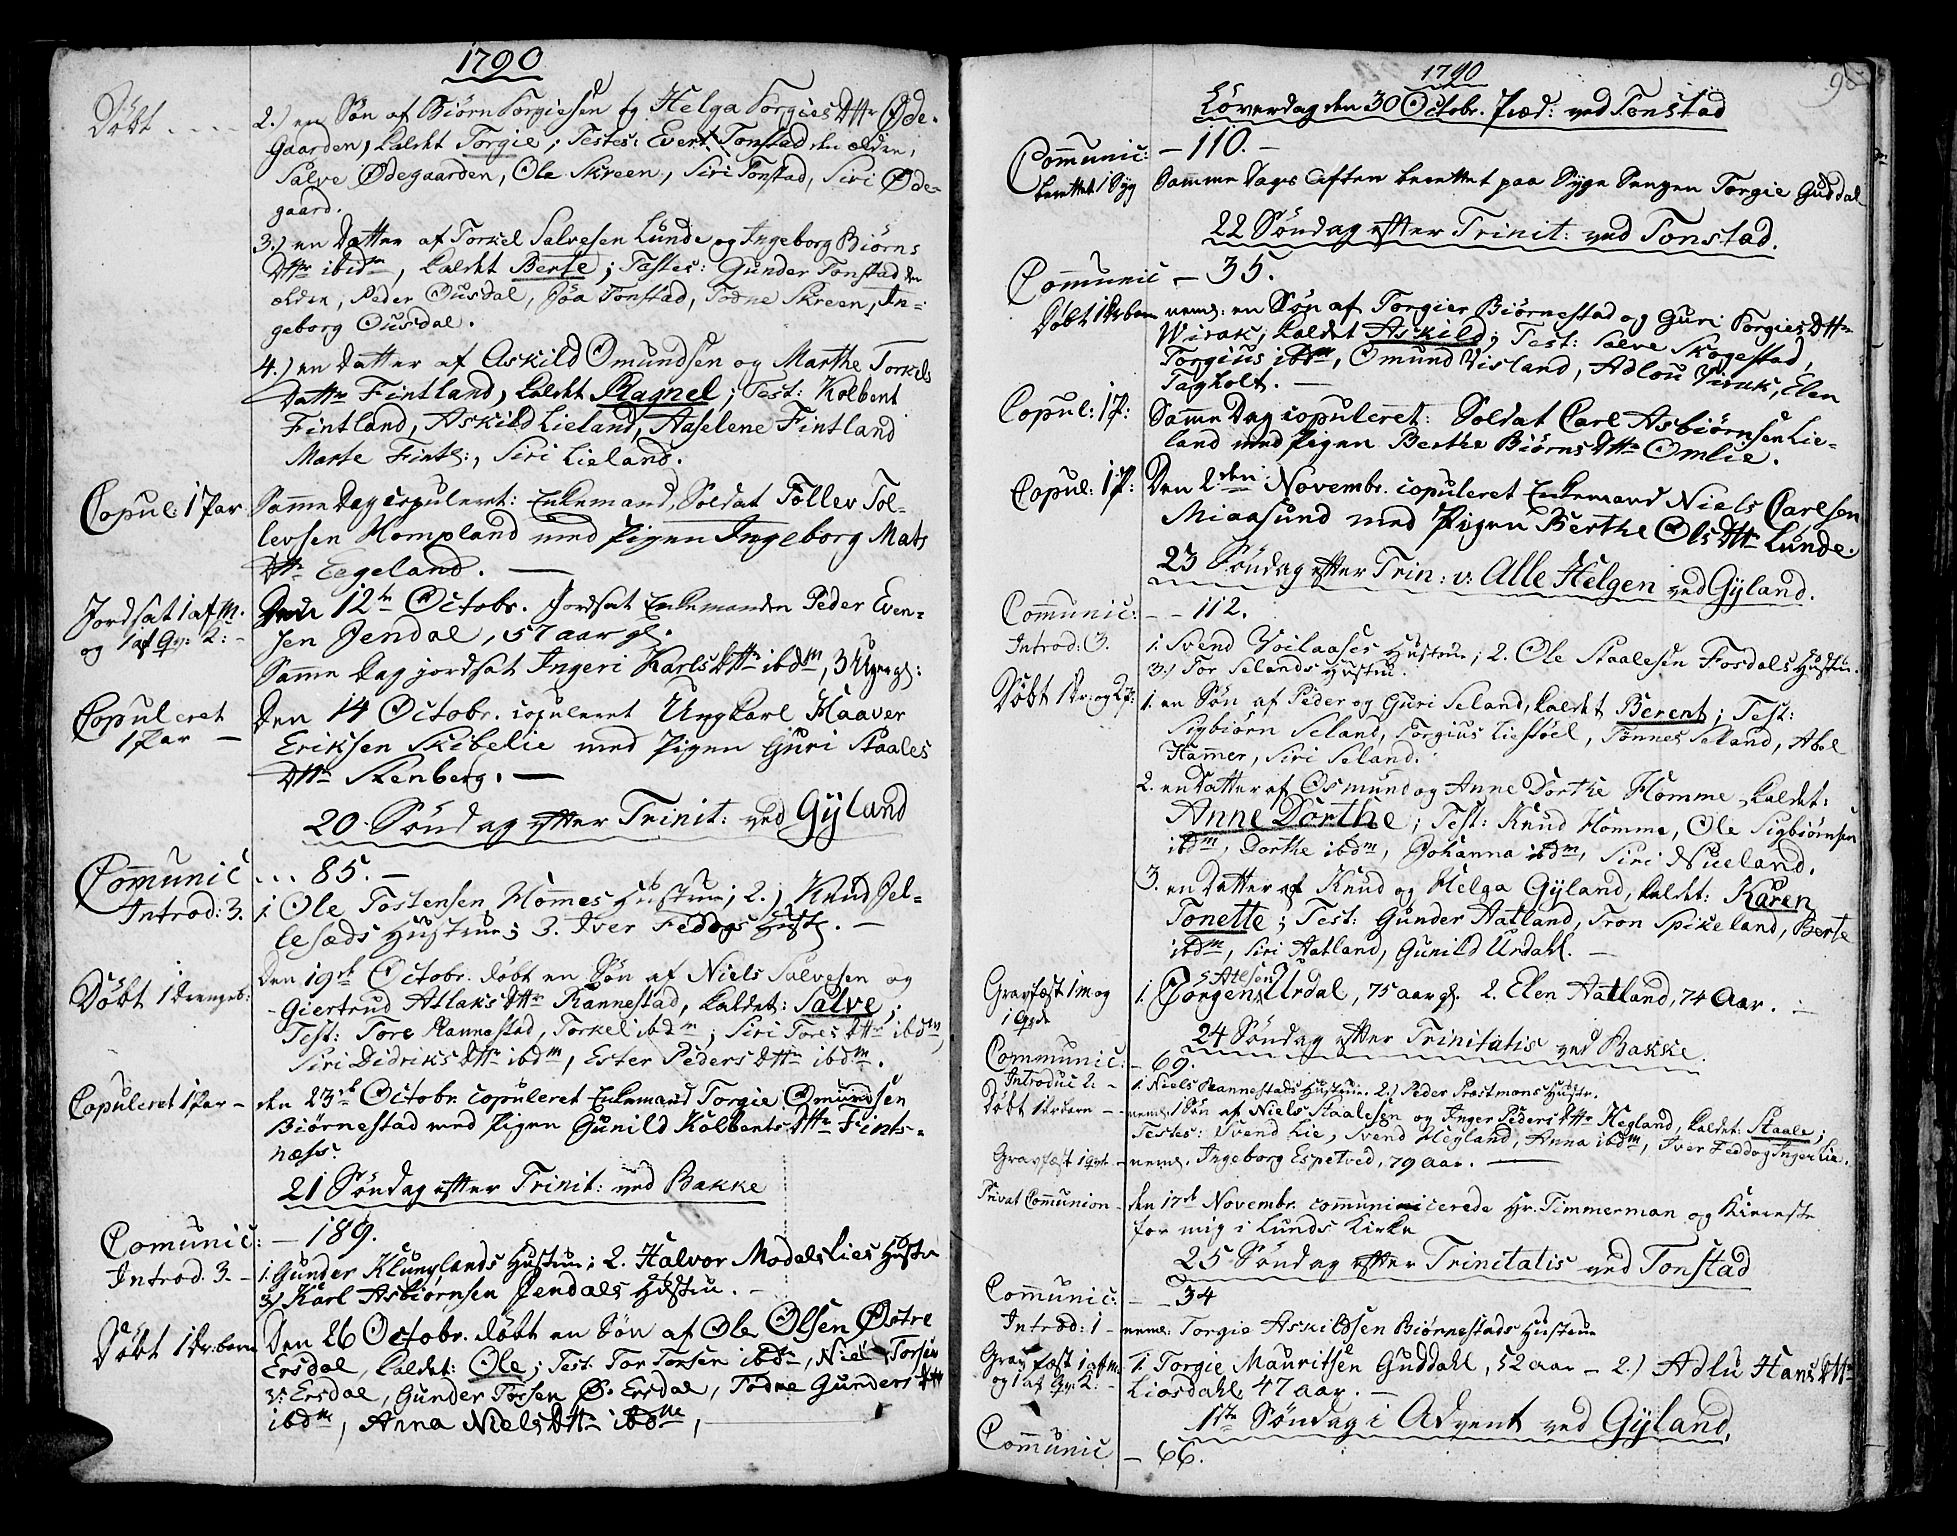 1790
Döbt . . . .
2.) en Søn af Biørn Torgiesen og Helga Torgies Dttr Øde-
Gaarden, kaldet Torgie; Testes: Evert Tonstad den ælder,
Salve Ødegaarden, Ole Skreen, Siri Tonstad, Siri Øde-
gaard.
3.) en Datter af Torkel Salvesen Lunde og Ingeborg Biørns
Dttr ibidm, kaldet Berte; Testes: Gunder Tonstad den
ælder, Peder Ousdal, Jöa Tonstad, Todne Skreen, In-
geborg Ousdal.
4.) en Datter af Askild Omundsen og Marthe Torkels
Dattr Fintland, kaldet Ragnel; Test: Kolbent
Fintland, Askild Lieland, Aaselene Fintland
Marte Fintl:, Siri Lieland.
Copul: 1 Par
Samme Dag copuleret: Enkemand, Soldat Tollev Tol-
levsen Hompland med Pigen Ingeborg Mats
Dttr Eegeland. —
Jordsat 1 af M.
og 1 af Qv: K: -
Den 12te Octobr. Jordsat Enkemanden Peder Even-
sen Jendal, 57 aar gl.
Samme Dag jordsat Ingeri Karls Dttr ibdm, 3 Uger gl:
Copuleret
1 Par —
Den 14 Octobr. copuleret Ungkarl Haaver
Eriksen Skibelie med Pigen Guri Staales
Dttr Stenberg. —
20 Söndag efter Trinit: ved Gyland
Communic . . . 85. —
Introd: 3.
1. Ole Tostensen Hommes Hustrue; 2.) Knud Jel-
lesæds Hustrue; 3. Iver Feddogs Hustr. —
Döbt 1 Drengeb:
Den 19de Octobr. döbt en Søn af Niels Salvesen og
Giertrud Atlaks Dttr Rannestad, kaldet: Salve;
Test: Tore Rannestad, Torkel ibdm; Siri Tores Dttr ibdm,
Siri Didriks Dttr ibdm, Ester Peders Dttr ibdm.
Copuleret 1 Par —
den 23de Octobr. copuleret Enkemand Torgie Omundsen
Biørnestad med Pigen Gunild Kolbents Dttr Fints-
næss.
21 Söndag efter Trinit: ved Bakke
Comunic: — 189.
Introd. 3. -
1. Gunder Klunglands Hustrue; 2. Halvor Modals Lies Hustr
3.) Karl Asbiørnsen Jendals Hustru. -
Döbt 1 Dr: barn
Den 26 Octobr. döbt en Søn af Ole Olsen Østre
Ersdal, kaldet: Ole; Test. Tor Torsen ibdm, Niel Torsen
V: Ersdal, Gunder Torsen Ø. Ersdal, Todne Gunders Dttr
ibdm, Anna Niels Dttr ibdm,
1790
Löverdag den 30 Octobr. Præd: ved Tonstad
Communic: — 110. —
berettet 1 Syg
Samme Dags Aften berettet paa Syge Sengen Torgie Guddal
22 Söndag efter Trinit: ved Tonstad.
Communic — 35.
Döbt 1 Dr: barn
neml: en Søn af Torgier Biørnestad og Guri Torgies Dttr
Wirak, kaldet Askild; Test: Salve Skogestad,
Torgius ibdm, Omund Visland, Adlou Virak, Elen
Tagholt. —
Copul: 1 P:
Samme Dag copuleret: Soldat Carl Asbiørnsen Lie-
land med Pigen Berthe Biørns Dttr Omlie.
Copul: 1 P:
Den 2den Novembr. copuleret Enkemand Niels Carlsen
Miaasund med Pigen Berthe Ols Dttr Lunde.
23 Söndag efter Trin: v: Alle Helgen ved Gyland.
Communic: — 112.
Introd: 3.
1. Svend Voilaases Hustrue; 2. Ole Staalesen Fosdals Hustru.
3.) Tor Selands Hustru.
Döbt 1 Dr: og 2 P:
1. en Søn af Peder og Guri Seland, kaldet Berent; Test:
Sigbiørn Seland, Torgius Liestöel, Tönnes Seland, Abel
Hamer, Siri Seland.
2. en Datter af Osmund og Anne Dorthe Homme kaldet:
Anne Dorthe; Test: Knud Homme, Ole Sigbiørnsen
ibdm, Dorthe ibdm, Johanna ibdm, Siri Nueland.
3. en Datter af Knud og Helga Gyland, kaldet: Karen
Tonette; Test: Gunder Aatland, Tron Spikeland, Berte
ibdm, Siri Aatland, Gunild Urdahl. —
Gravfæst 1 M og
1 Qvde
1. Jörgen Atlesen Urdal, 75 aar gl. 2. Elen Aatland, 74 Aar. —
24 Söndag efter Trinitatis ved Bakke.
Communic: — 69.
Introduc 2: -
1. Niels Rannestads Hustrue. 2.) Peder Præstmons Hustr.
Döbt 1 Dr: barn —
neml: 1 Søn af Niels Staalesen og Inger Peders Dttr Hegland, kaldet: Staale;
Testes: Svend Lie, Svend Hegland, Anna ibdm, Iver Feddog Inger Lie.
Gravfæst 1 Qvde —
neml. Ingeborg Espetved, 79 aar. —
Privat Communion —
den 17de Novembr. communicerede Hr. Timmerman og Kiereste
for mig i Lunds Kirke
25 Söndag efter Trinitatis ved Tonstad
Communic: — 34
Introd: 1 —
neml: Torgie Askildsen Biørnestads Hustrue
Gravfæst 1 af M
og 1 af Qv: K: -
1. Torgie Mauritsen Guddahl, 52 aar — 2.) Adlu Hans Dttr
Liosdahl 47 aar. —
1ste Söndag i Advent ved Gyland,
Communic — 66.